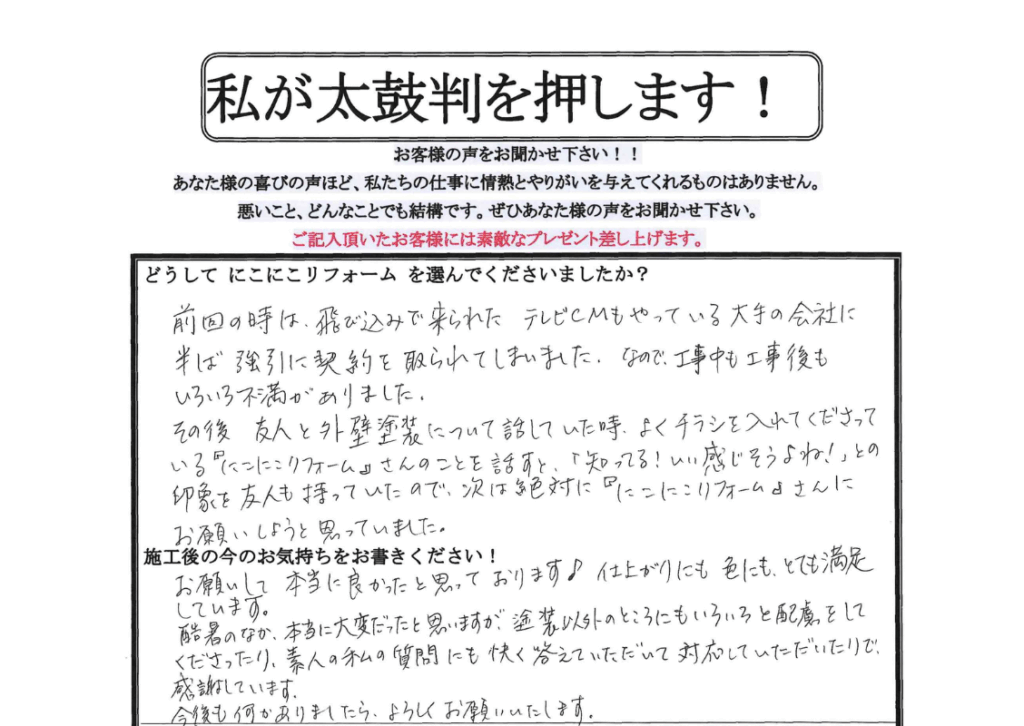 私が太鼓判を押します！
お客様の声をお聞かせ下さい！！
あなた様の喜びの声ほど、私たちの仕事に情熱とやりがいを与えてくれるものはありません。
悪いこと、どんなことでも結構です。ぜひあなた様の声をお聞かせ下さい。
ご記入頂いたお客様には素敵なプレゼント差し上げます。
どうして にこにこリフォーム を選んでくださいましたか？
前回の時は、飛び込みで来られた テレビCMもやっている大手の会社に
半ば 強引に契約を取られてしまいました。なので、工事中も工事後も
いろいろ不満がありました。
その後 友人と外壁塗装について話していた時、よくチラシを入れてくださって
いる『にこにこリフォーム』さんのことを話すと、「知ってる！いい感じそうよね！」との
印象を友人も持っていたので、次は絶対に『にこにこリフォーム』さんに
お願いしようと思っていました。
施工後の今のお気持ちをお書きください！
お願いして 本当に良かったと思っております♪ 仕上がりにも 色にも、とても満足
しています。
酷暑のなか、本当に大変だったと思いますが、塗装以外のところにもいろいろと配慮をして
くださったり、素人の私の質問にも快く答えていただいて対応していただいたりで、
感謝しています。
今後も何かありましたら、よろしくお願いいたします。